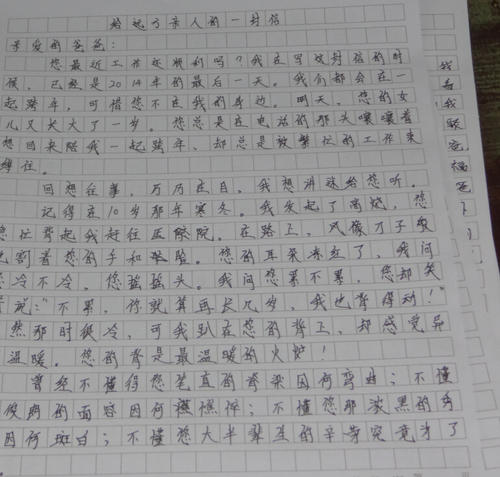 给起了亲人的一封信
亲爱的爸爸：
您最近工作还顺利吗？我在写这封信的时
候，已经是2014年的最后一天。我们都会在一
起跨年，可惜您不在我的身边。明天，您的女
儿又长大了一岁。您总是在电话的那头嚷嚷着
想回来陪我一起跨年，却总是被繁忙的工作束
缚住。
回想往事，历历在目。我想讲述给您听。
记得在10岁那年寒冬。我发起了高烧，您
忙背起我赶往医院。在路上，风像刀子
割着您的手和脸。您的耳朵冻红了，我问
您冷不冷，您摇摇头。我问您累不累，您却笑
说："不累，你就算再长几岁，我也背得动！"
然那时很冷，可我趴在您的背上，却感觉异
温暖。您的背是最温暖的火炉！
曾经不懂得您笔直的脊梁因何弯曲；不懂
俊朗的面容因何憔悴；不懂您那浓黑的
因何斑白；不懂您大半辈生的辛劳究竟为了